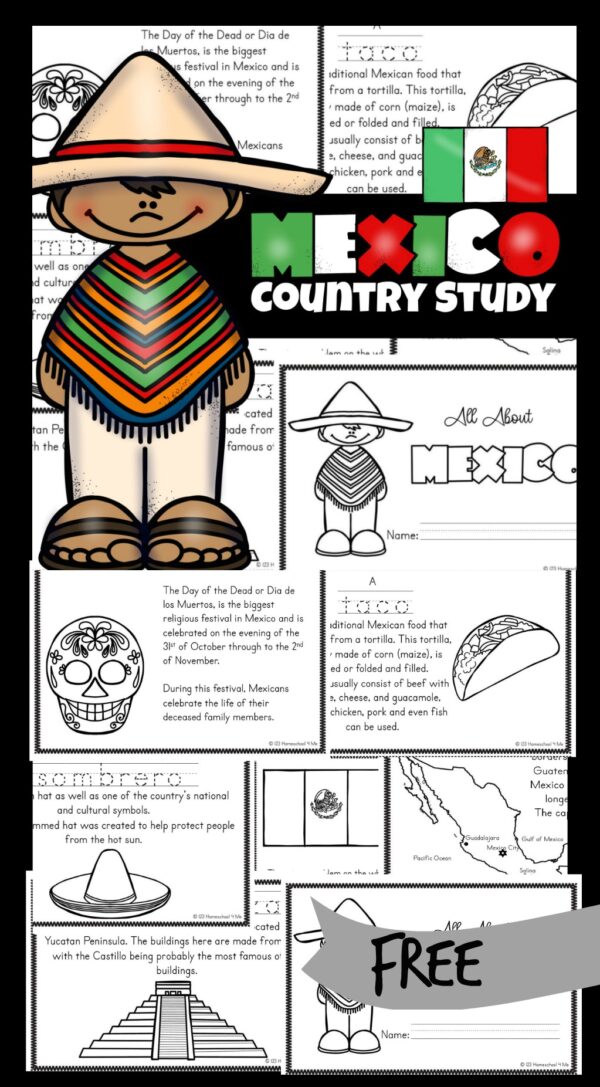 The Day of the Dead or Dia de
los Muertos, is the biggest
festival in Mexico and is
on the evening of the
through to the 2nd
Mexicans
A
taco
ditional Mexican food that
from a tortilla. This tortilla,
made of corn (maize), is
ed or folded and filled.
usually consist of
e, cheese, and
chicken, pork and
can be used.
MEXICO
COUNTRY STUDY
well as one
Sglina
All About
MEXICO
Name:
The Day of the Dead or Dia de
los Muertos, is the biggest
religious festival in Mexico and is
celebrated on the evening of the
31st of October through to the 2nd
of November.
During this festival, Mexicans
celebrate the life of their
deceased family members.
© 123 Homeschool 4 Me
A
taco
ditional Mexican food that
from a tortilla. This tortilla,
made of corn (maize), is
ed or folded and filled.
usually consist of beef with
e, cheese, and guacamole,
chicken, pork and even fish
can be used.
© 123 Homeschool 4 Me
sombrero
hat as well as one of the country's national
and cultural symbols.
mmed hat was created to help protect people
from the hot sun.
© 123 Homeschool 4 Me
Mexico
longe
The cap
Guadalajara
Mexico City
Gulf of Mexico
Pacific Ocean
Sglina
Yucatan Peninsula. The buildings here are made from
with the Castillo being probably the most famous of
buildings.
All About
FREE
Name:
© 123 Homeschool 4 Me